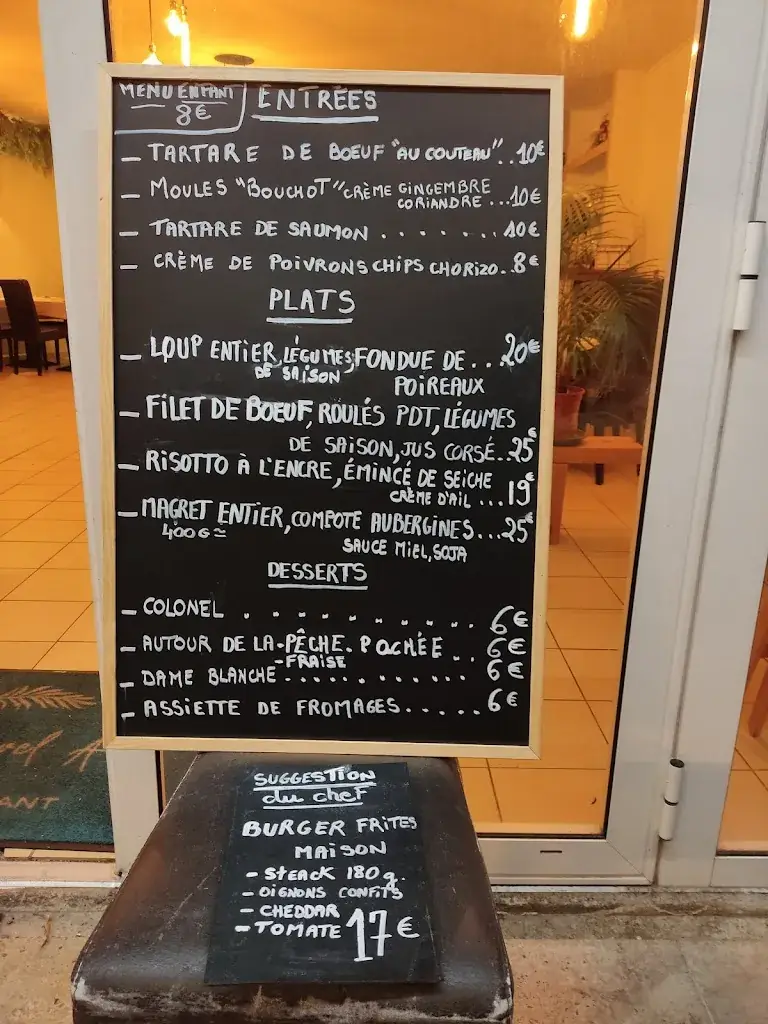 MENU ENFANT
8€
ENTRÉES
– TARTARE DE BOEUF "AU COUTEAU"..10€
– MOULES "BOUCHOT" CRÈME GINGEMBRE
CORIANDRE...10€
– TARTARE DE SAUMON.......10€
– CRÈME DE POIVRONS CHIPS CHORIZO..8€
PLATS
– LOUP ENTIER, LÉGUMES, FONDUE DE...20€
DE SAISON POIREAUX
– FILET DE BOEUF, ROULÉS PDT, LÉGUMES
DE SAISON, JUS CORSÉ..25€
– RISOTTO À L'ENCRE, ÉMINCÉ DE SEICHE
CRÈME D'AIL...19€
– MAGRET ENTIER, COMPOTE AUBERGINES...25€
400G≃ SAUCE MIEL, SOJA
DESSERTS
– COLONEL..........6€
– AUTOUR DE LA-PÊCHE. POCHÉE..6€
-FRAISE
– DAME BLANCHE............6€
– ASSIETTE DE FROMAGES.....6€
SUGGESTION
du chef
BURGER FRITES
MAISON
- STEACK 180g.
- OIGNONS CONFITS
- CHEDDAR
- TOMATE 17€
ANT